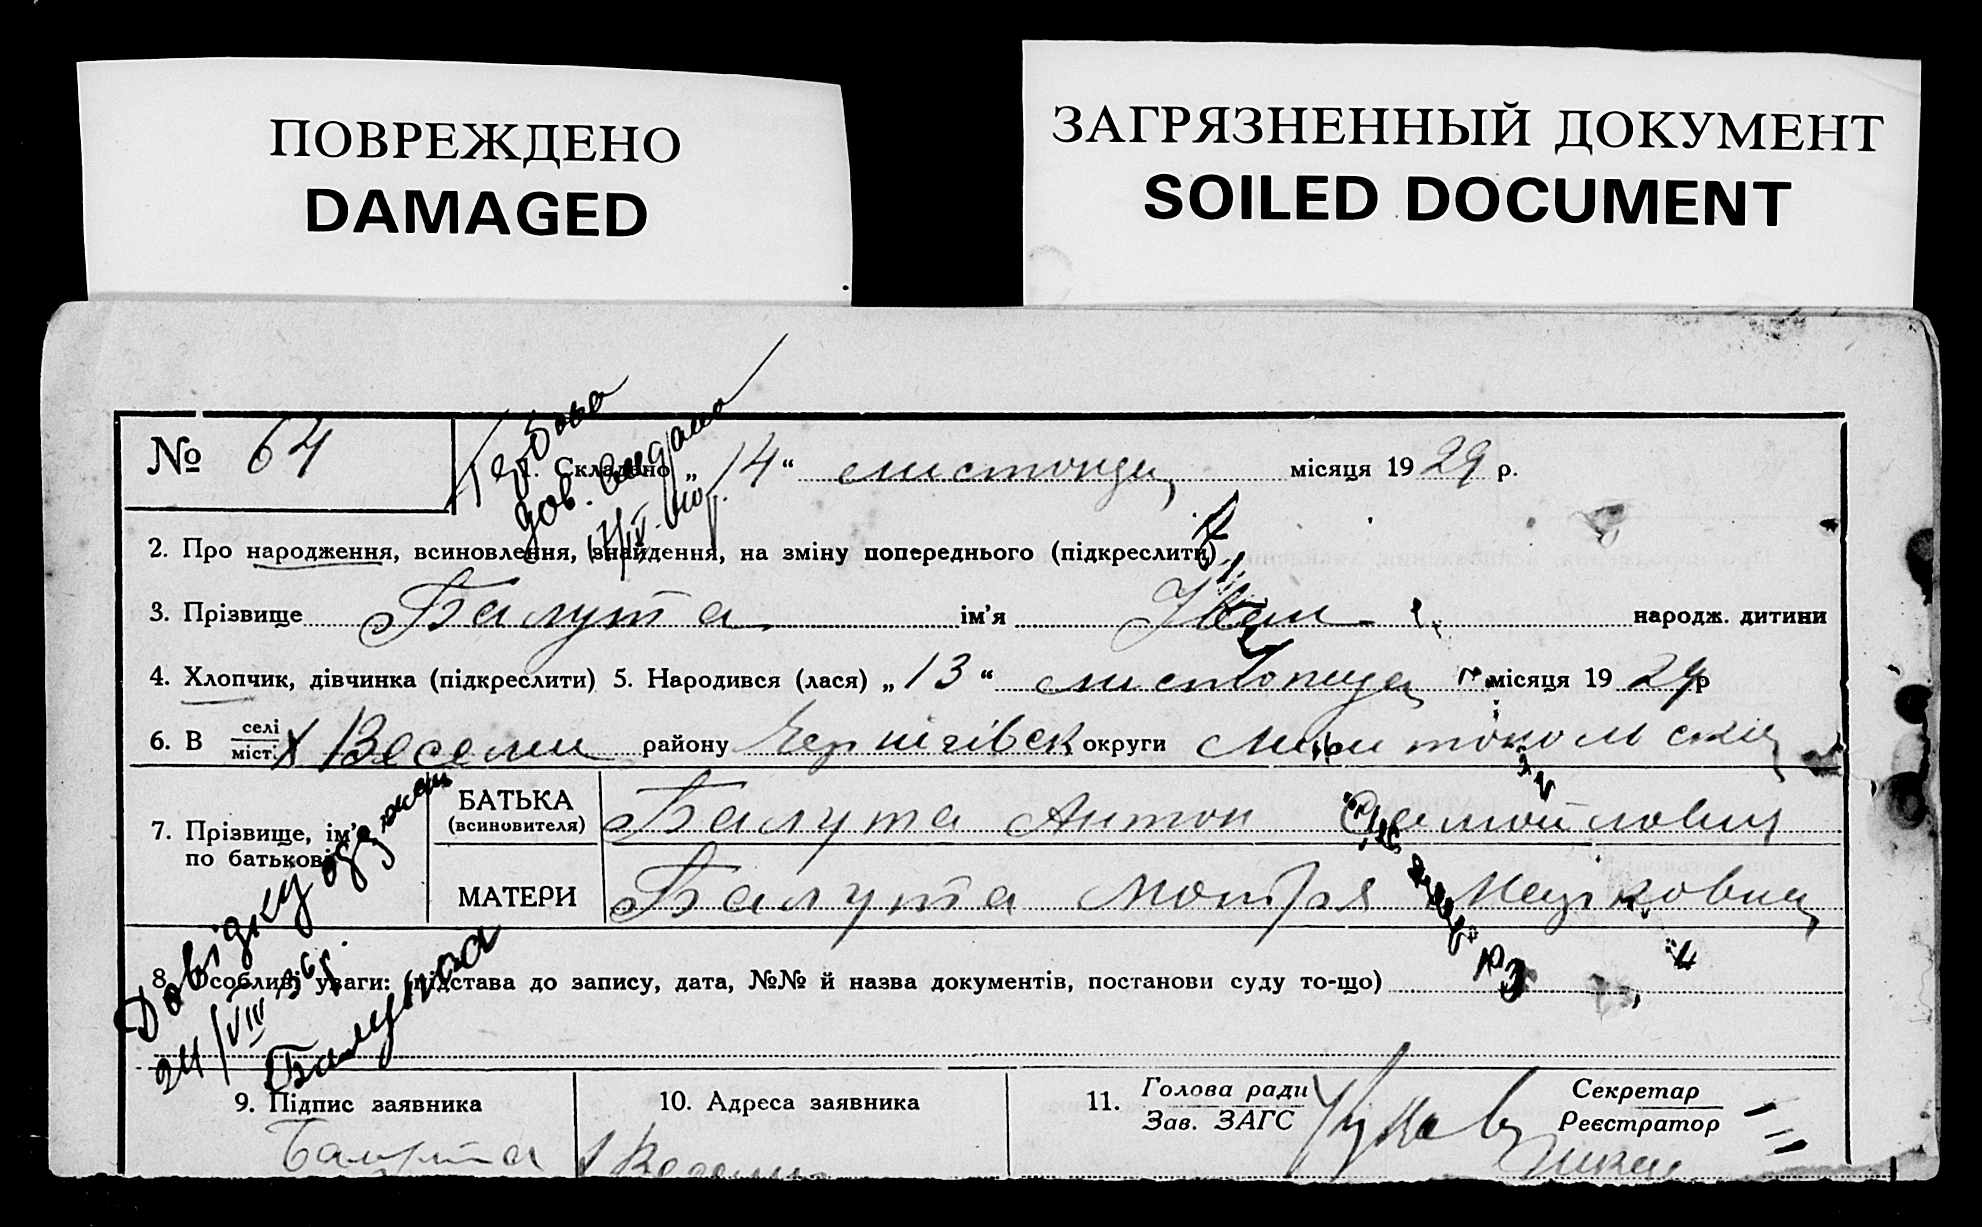 ПОВРЕЖДЕНО
DAMAGED
ЗАГРЯЗНЕННЫЙ ДОКУМЕНТ
SOILED DOCUMENT
№ 64
1. Складено „14“ листопада місяця 1929 р.
2. Про народження, всиновлення, знайдення, на зміну попереднього (підкреслити)
3. Прізвище Балута ім'я Іван народж. дитини
4. Хлопчик, дівчинка (підкреслити) 5. Народився (лася) „13“ листопада місяця 1929 р
6. В селі/місті Весели району Чернігівськ округи Мелитопольська
7. Прізвище, ім'я по батькові
БАТЬКА (всиновителя) Балута Антон Самойлович
МАТЕРИ Балута Мотря
Довідку одержав
24/VIII 36 р.
Балута
8. Особливі уваги: (підстава до запису, дата, №№ й назва документів, постанови суду то-що)
9. Підпис заявника
Балута
10. Адреса заявника
11. Голова ради
Зав. ЗАГС
Секретар
Реєстратор